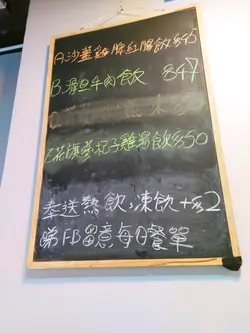 A.沙薑雞髀紅腸飯$45
B.滑旦牛肉飯 $47
E.花旗蔘杞子雞湯飯$50
奉送熱飲,凍飲+$2
睇FB留意每日餐單